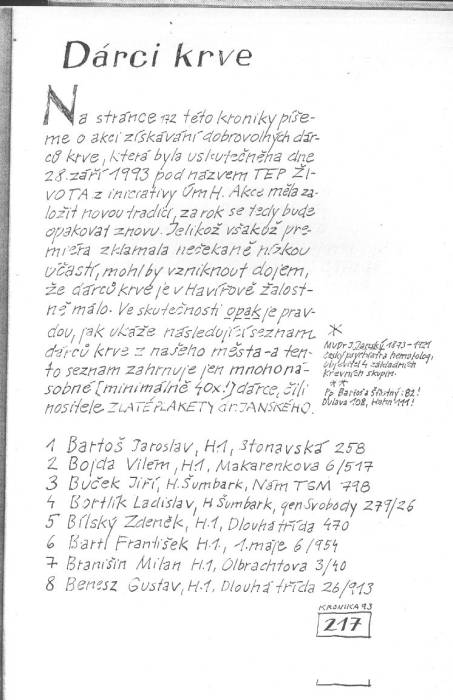 Dárci krve
Na stránce 172 této kroniky píše-
me o akci získávání dobrovolných dár-
ců krve, která byla uskutečněna dne
28. září 1993 pod názvem TEP ŽI-
VOTA z iniciativy ÚmH. Akce měla za-
ložit novou tradici, za rok se tedy bude
opakovat znovu. Jelikož však ož pre-
miéra zklamala nečekaně nízkou
účastí, mohl by vzniknout dojem,
že dárců krve je v Havířově žalost-
ně málo. Ve skutečnosti opak je prav-
dou, jak ukáže následující seznam
dárců krve z našeho města - a ten-
to seznam zahrnuje jen mnohoná-
sobné [minimálně 40x!] dárce, čili
nositele ZLATÉ PLAKETY dr. JÁNSKÉHO.
*
MUDr. J. Jánský, 1873-1921
český psychiatr a hematolog,
objevitel 4 základních
krevních skupin.
**
Pp. Bartoš a Šťastný: 82!
Dvlava 108, Horn 111!
1 Bartoš Jaroslav, H.1, Stonavská 258
2 Bojda Vilém, H1, Makarenkova 6/517
3 Buček Jiří, H. Šumbark, Nám TGM 798
4 Bortlík Ladislav, H Šumbark, gen Svobody 279/26
5 Bílský Zdeněk, H.1, Dlouhá třída 470
6 Bartl František H.1., 1. máje 6/954
7 Branišin Milan H.1, Olbrachtova 3/40
8 Benesz Gustav, H.1. Dlouhá třída 26/913
KRONIKA 93
217